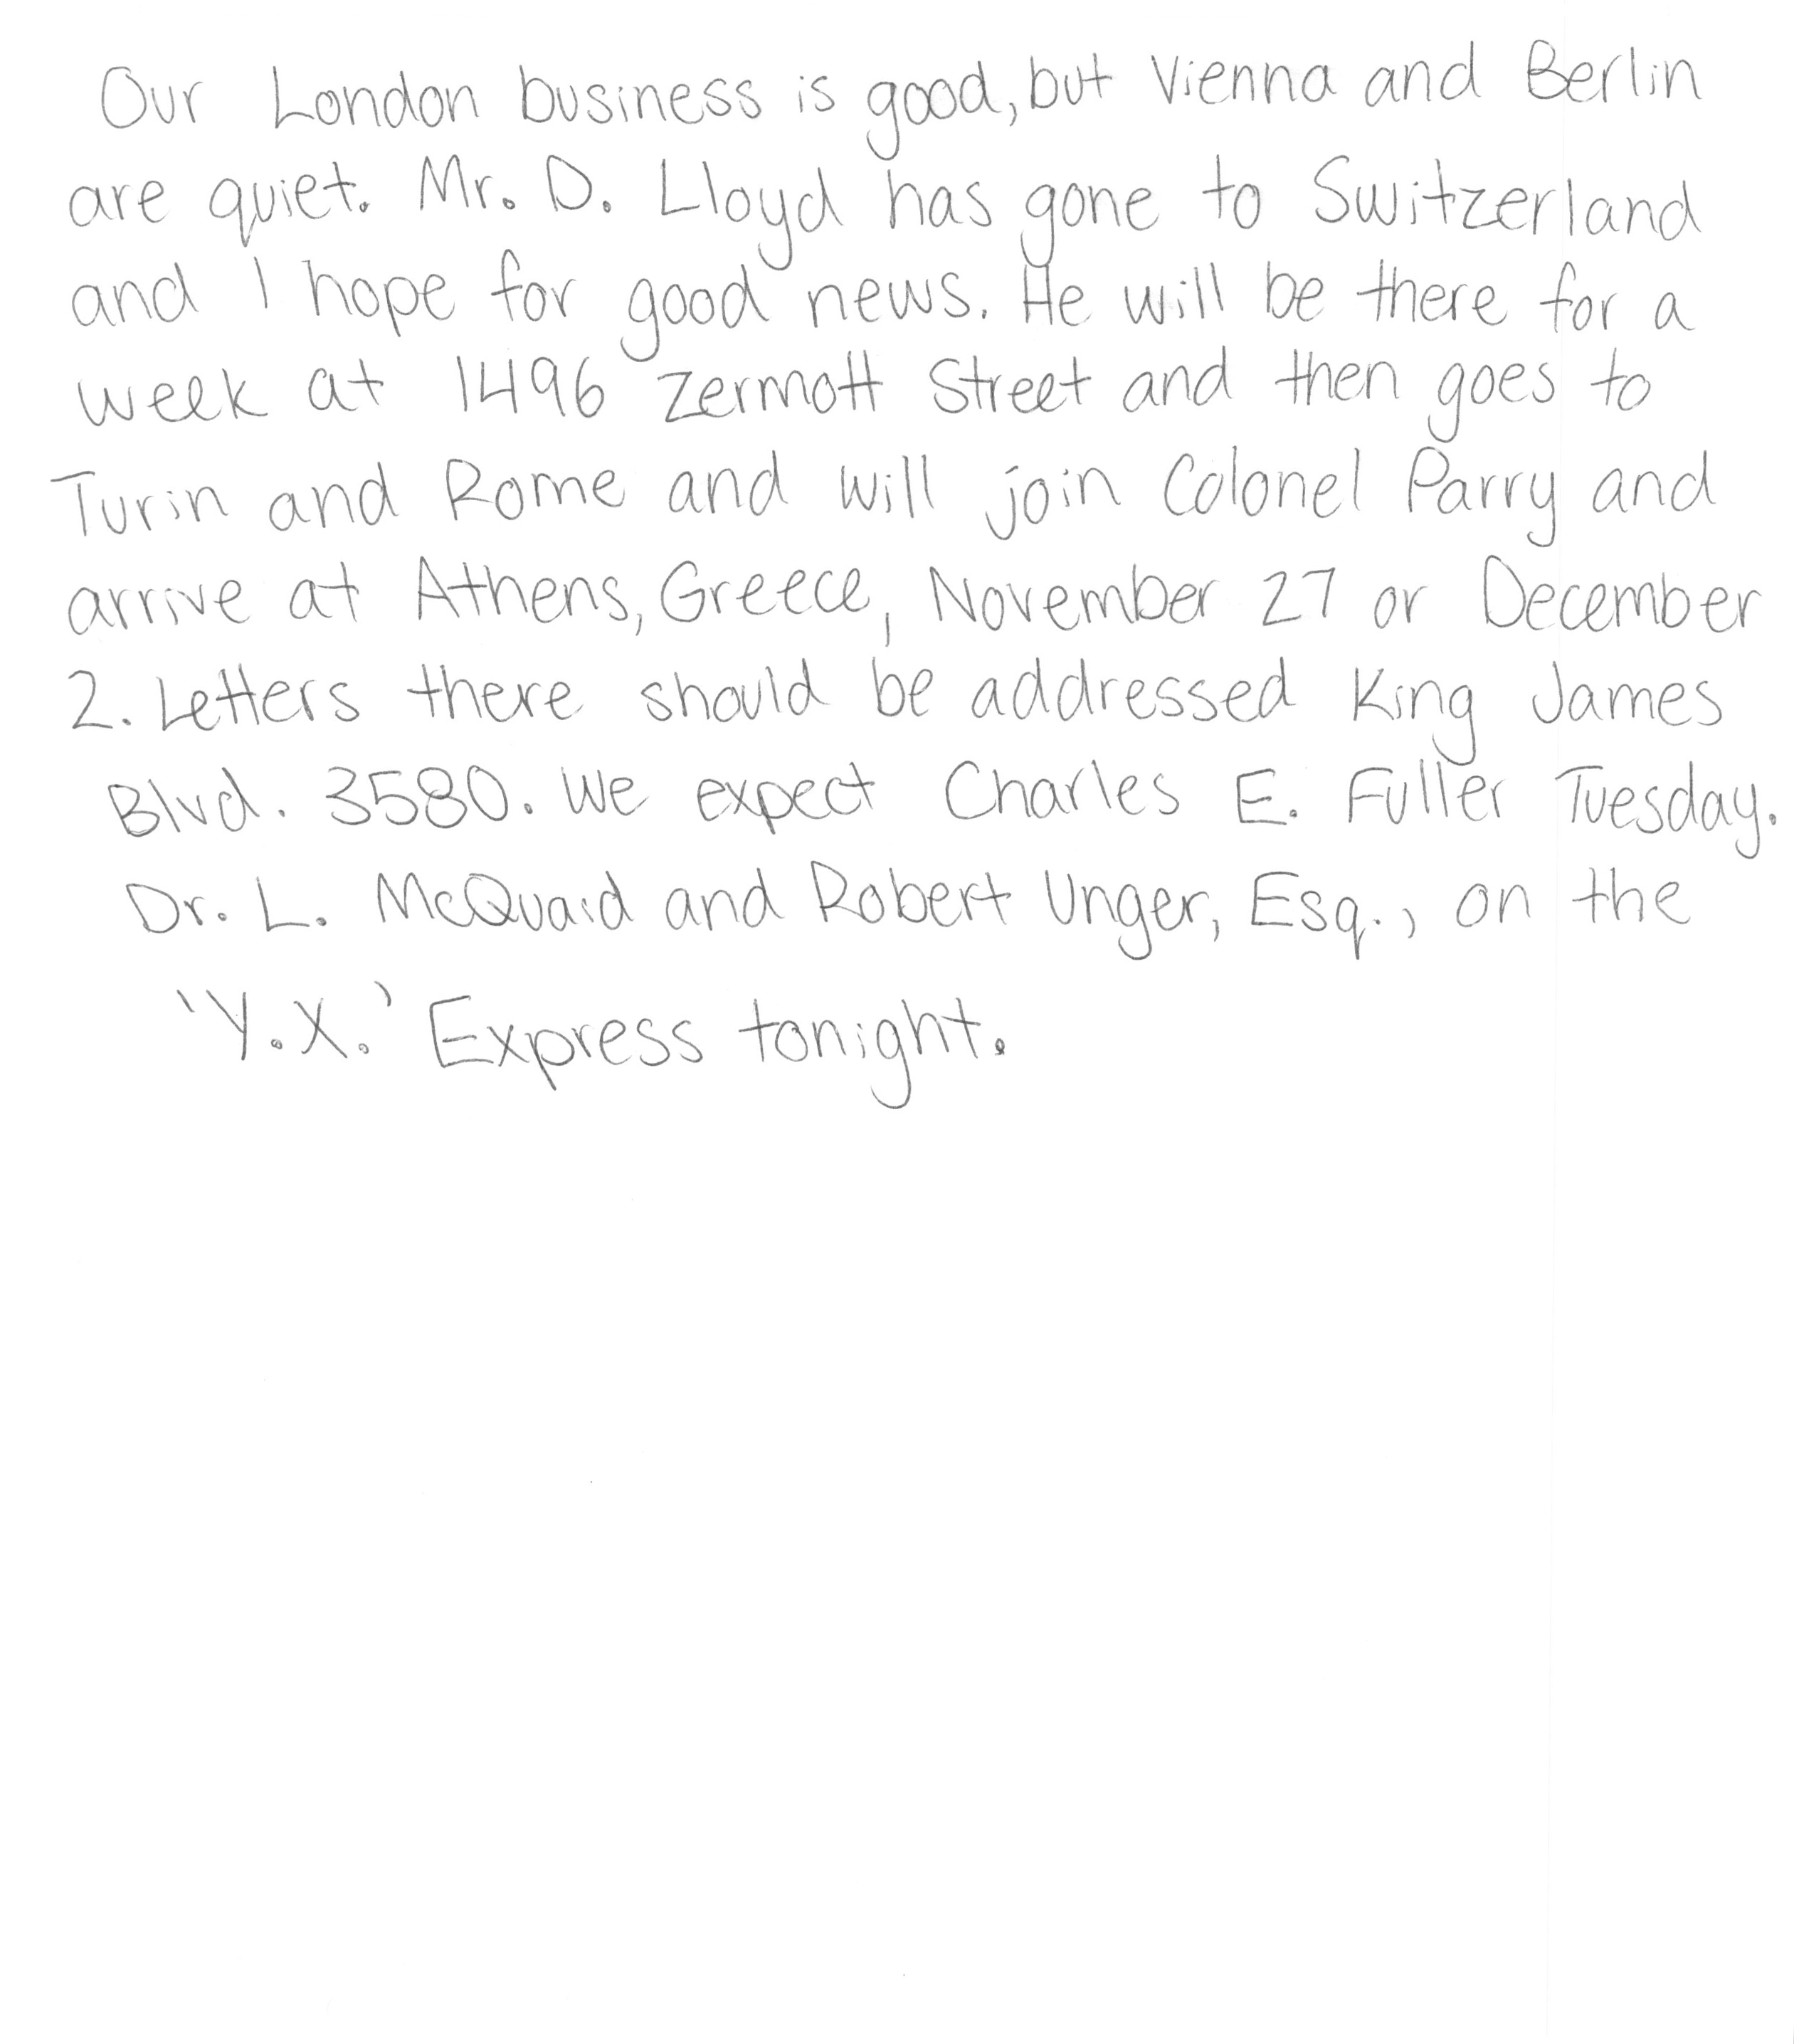 Our London business is good, but Vienna and Berlin
are quiet. Mr. D. Lloyd has gone to Switzerland
and I hope for good news. He will be there for a
week at 1496 Zermott Street and then goes to
Turin and Rome and will join Colonel Parry and
arrive at Athens, Greece, November 27 or December
2. Letters there should be addressed King James
Blvd. 3580. We expect Charles E. Fuller Tuesday.
Dr. L. McQuaid and Robert Unger, Esq., on the
'Y.X.' Express tonight.